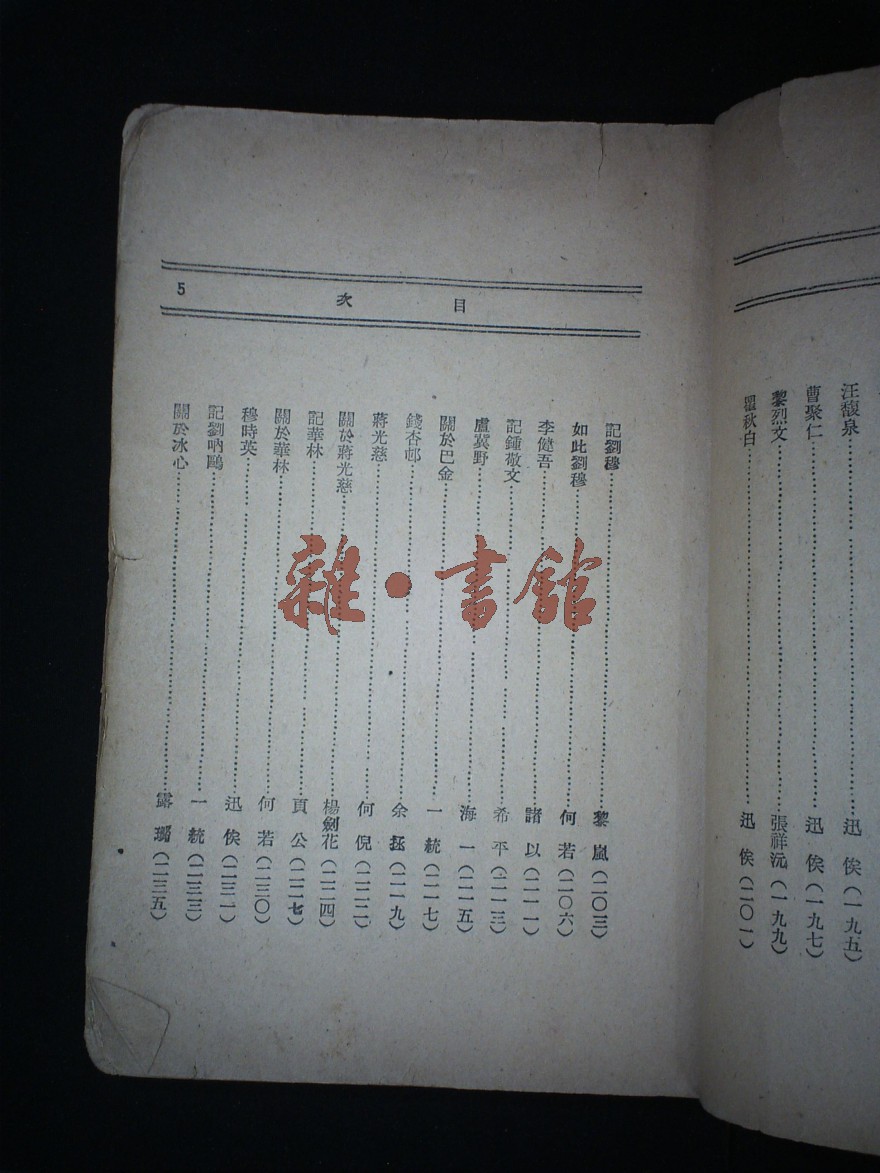 汪馥泉……迅 俟(一九五)
曹聚仁……迅 俟(一九七)
黎烈文……張祥沅(一九九)
瞿秋白……迅 俟(二〇一)
目 次 5
記劉穆……黎 嵐(二〇三)
如此劉穆……何 若(二〇六)
李健吾……諸 以(二一一)
記鍾敬文……希 平(二一三)
盧冀野……海 一(二一五)
關於巴金……一 統(二一七)
錢杏邨……余 拯(二一九)
蔣光慈……何 倪(二二二)
關於蔣光慈……楊劍花(二二四)
記華林……頁 公(二二七)
關於華林……何 若(二三〇)
穆時英……迅 俟(二三一)
記劉吶鷗……一 統(二三三)
關於冰心……露 (二三五)
雜·書館